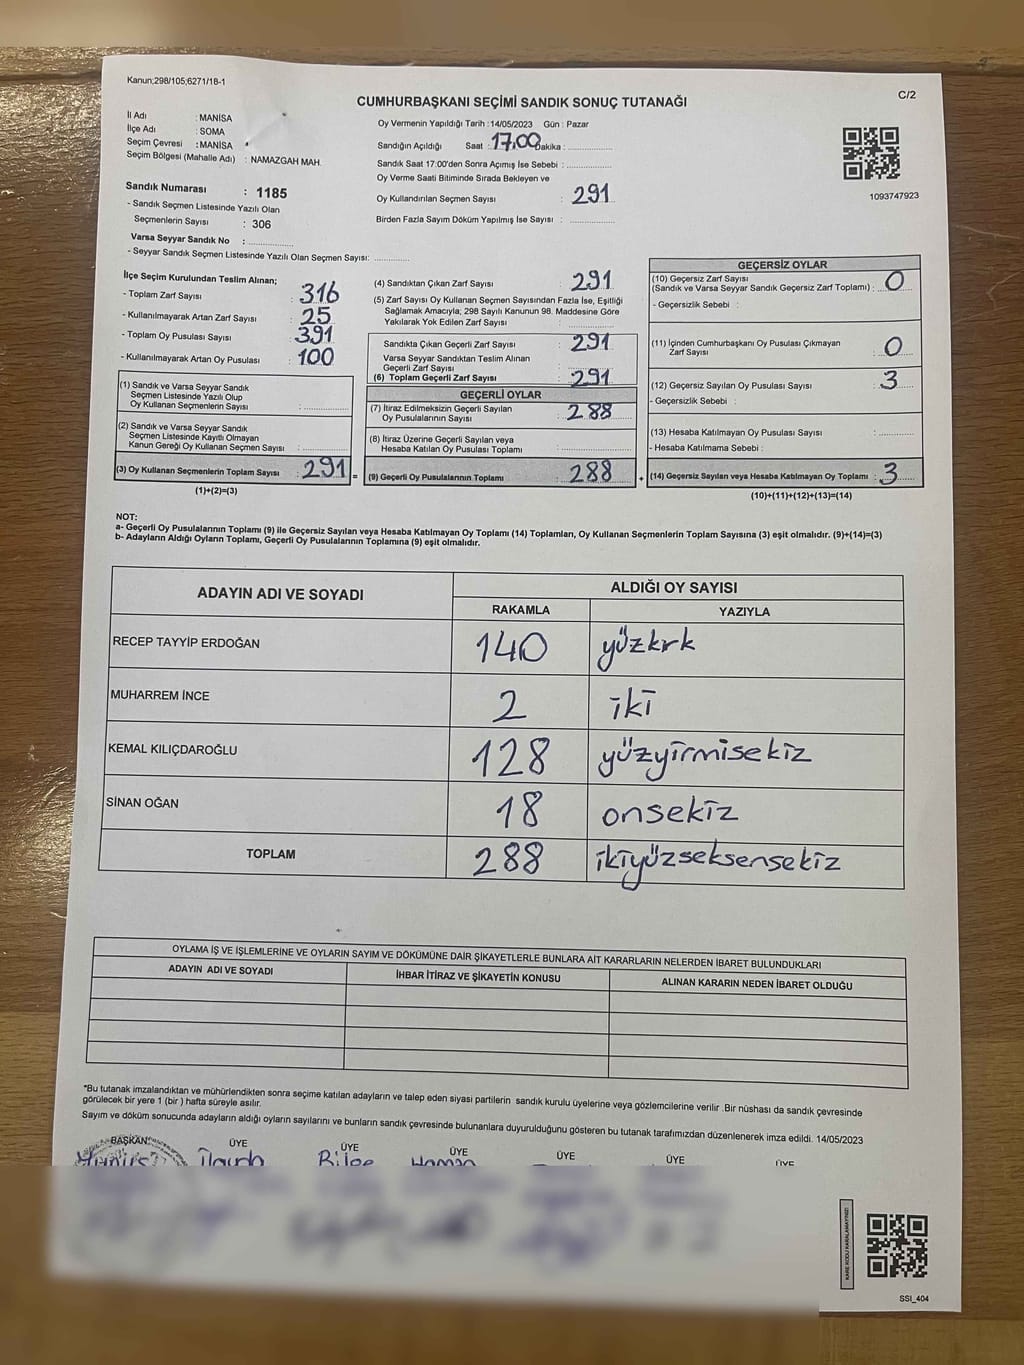 Kanun;298/105;6271/18-1
C/2
CUMHURBAŞKANI SEÇİMİ SANDIK SONUÇ TUTANAĞI
İl Adı : MANİSA
İlçe Adı : SOMA
Seçim Çevresi : MANİSA
Seçim Bölgesi (Mahalle Adı) : NAMAZGAH MAH.
Oy Vermenin Yapıldığı Tarih : 14/05/2023 Gün : Pazar
Sandığın Açıldığı Saat : 17.00 Dakika : ..............
Sandık Saat 17:00'den Sonra Açımış İse Sebebi : ..............
Oy Verme Saati Bitiminde Sırada Bekleyen ve
Oy Kullandırılan Seçmen Sayısı : 291
Birden Fazla Sayım Döküm Yapılmış İse Sayısı : ..............
1093747923
Sandık Numarası : 1185
- Sandık Seçmen Listesinde Yazılı Olan
Seçmenlerin Sayısı : 306
Varsa Seyyar Sandık No : ..............
- Seyyar Sandık Seçmen Listesinde Yazılı Olan Seçmen Sayısı: ..............
İlçe Seçim Kurulundan Teslim Alınan;
- Toplam Zarf Sayısı : 316
- Kullanılmayarak Artan Zarf Sayısı : 25
- Toplam Oy Pusulası Sayısı : 391
- Kullanılmayarak Artan Oy Pusulası : 100
(1) Sandık ve Varsa Seyyar Sandık
Seçmen Listesinde Yazılı Olup
Oy Kullanan Seçmenlerin Sayısı : ..............
(2) Sandık ve Varsa Seyyar Sandık
Seçmen Listesinde Kayıtlı Olmayan
Kanun Gereği Oy Kullanan Seçmen Sayısı : ..............
(3) Oy Kullanan Seçmenlerin Toplam Sayısı : 291 =
(1)+(2)=(3)
(4) Sandıktan Çıkan Zarf Sayısı : 291
(5) Zarf Sayısı Oy Kullanan Seçmen Sayısından Fazla İse, Eşitliği
Sağlamak Amacıyla; 298 Sayılı Kanunun 98. Maddesine Göre
Yakılarak Yok Edilen Zarf Sayısı : ..............
Sandıkta Çıkan Geçerli Zarf Sayısı : 291
Varsa Seyyar Sandıktan Teslim Alınan
Geçerli Zarf Sayısı : ..............
(6) Toplam Geçerli Zarf Sayısı : 291
GEÇERLİ OYLAR
(7) İtiraz Edilmeksizin Geçerli Sayılan
Oy Pusulalarının Sayısı : 288
(8) İtiraz Üzerine Geçerli Sayılan veya
Hesaba Katılan Oy Pusulası Toplamı : ..............
(9) Geçerli Oy Pusulalarının Toplamı : 288 +
GEÇERSİZ OYLAR
(10) Geçersiz Zarf Sayısı
(Sandık ve Varsa Seyyar Sandık Geçersiz Zarf Toplamı) : 0
- Geçersizlik Sebebi :
(11) İçinden Cumhurbaşkanı Oy Pusulası Çıkmayan
Zarf Sayısı : 0
(12) Geçersiz Sayılan Oy Pusulası Sayısı : 3
- Geçersizlik Sebebi :
(13) Hesaba Katılmayan Oy Pusulası Sayısı : ..............
- Hesaba Katılmama Sebebi :
(14) Geçersiz Sayılan veya Hesaba Katılmayan Oy Toplamı : 3
(10)+(11)+(12)+(13)=(14)
NOT:
a- Geçerli Oy Pusulalarının Toplamı (9) ile Geçersiz Sayılan veya Hesaba Katılmayan Oy Toplamı (14) Toplamları, Oy Kullanan Seçmenlerin Toplam Sayısına (3) eşit olmalıdır. (9)+(14)=(3)
b- Adayların Aldığı Oyların Toplamı, Geçerli Oy Pusulalarının Toplamına (9) eşit olmalıdır.
ADAYIN ADI VE SOYADI ALDIĞI OY SAYISI
RAKAMLA YAZIYLA
RECEP TAYYİP ERDOĞAN 140 yüzkırk
MUHARREM İNCE 2 iki
KEMAL KILIÇDAROĞLU 128 yüzyirmisekiz
SİNAN OĞAN 18 onsekiz
TOPLAM 288 ikiyüzseksensekiz
OYLAMA İŞ VE İŞLEMLERİNE VE OYLARIN SAYIM VE DÖKÜMÜNE DAİR ŞİKAYETLERLE BUNLARA AİT KARARLARIN NELERDEN İBARET BULUNDUKLARI
ADAYIN ADI VE SOYADI İHBAR İTİRAZ VE ŞİKAYETİN KONUSU ALINAN KARARIN NEDEN İBARET OLDUĞU
*Bu tutanak imzalandıktan ve mühürlendikten sonra seçime katılan adayların ve talep eden siyasi partilerin sandık kurulu üyelerine veya gözlemcilerine verilir .Bir nüshası da sandık çevresinde
görülecek bir yere 1 (bir ) hafta süreyle asılır.
Sayım ve döküm sonucunda adayların aldığı oyların sayılarını ve bunların sandık çevresinde bulunanlara duyurulduğunu gösteren bu tutanak tarafımızdan düzenlenerek imza edildi. 14/05/2023
BAŞKAN ÜYE ÜYE ÜYE ÜYE ÜYE ÜYE
Bilge
KARE KODU KARALAMAYINIZ!
SSI_404